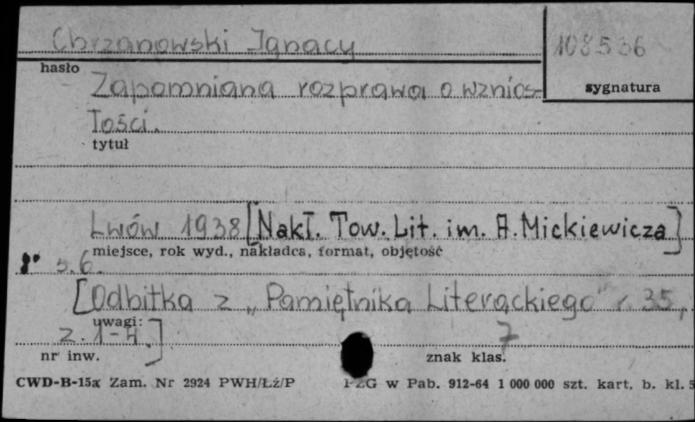 Chrzanowski Ignacy
108536
hasło
Zapomniana rozprawa o wznios-
sygnatura
łości.
tytuł
Lwów 1938 [Nakł. Tow. Lit. im. A. Mickiewicza]
miejsce, rok wyd., nakładca, format, objętość
s. 6.
[Odbitka z „Pamiętnika Literackiego" r. 35,
uwagi:
z. 1-4.]
7
nr inw.
znak klas.
CWD-B-15a Zam. Nr 2924 PWH/Łź/P
PZG w Pab. 912-64 1 000 000 szt. kart. b. kl. 5